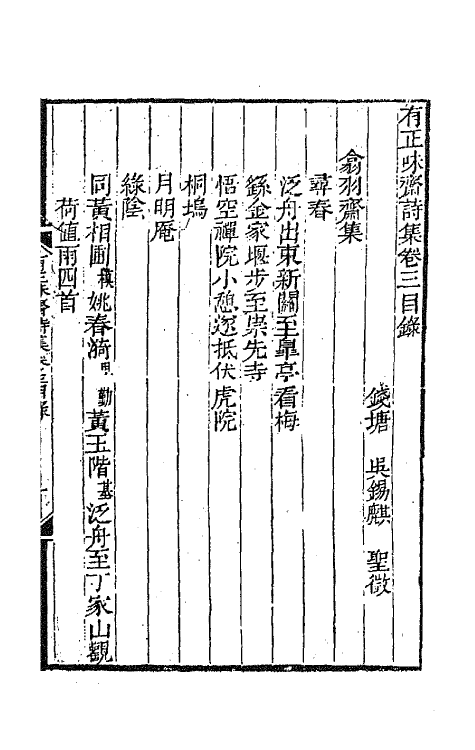 有正味齋詩集卷三目錄
錢塘 吳錫麒 聖徵
翕羽齋集
尋春
泛舟出東新關至臯亭看梅
繇金家堰步至崇先寺
悟空禪院小憩遂抵伏虎院
桐塢
月明庵
綠陰
同黃相圃模姚春漪黃玉階基泛舟至丁家山觀
荷值雨四首